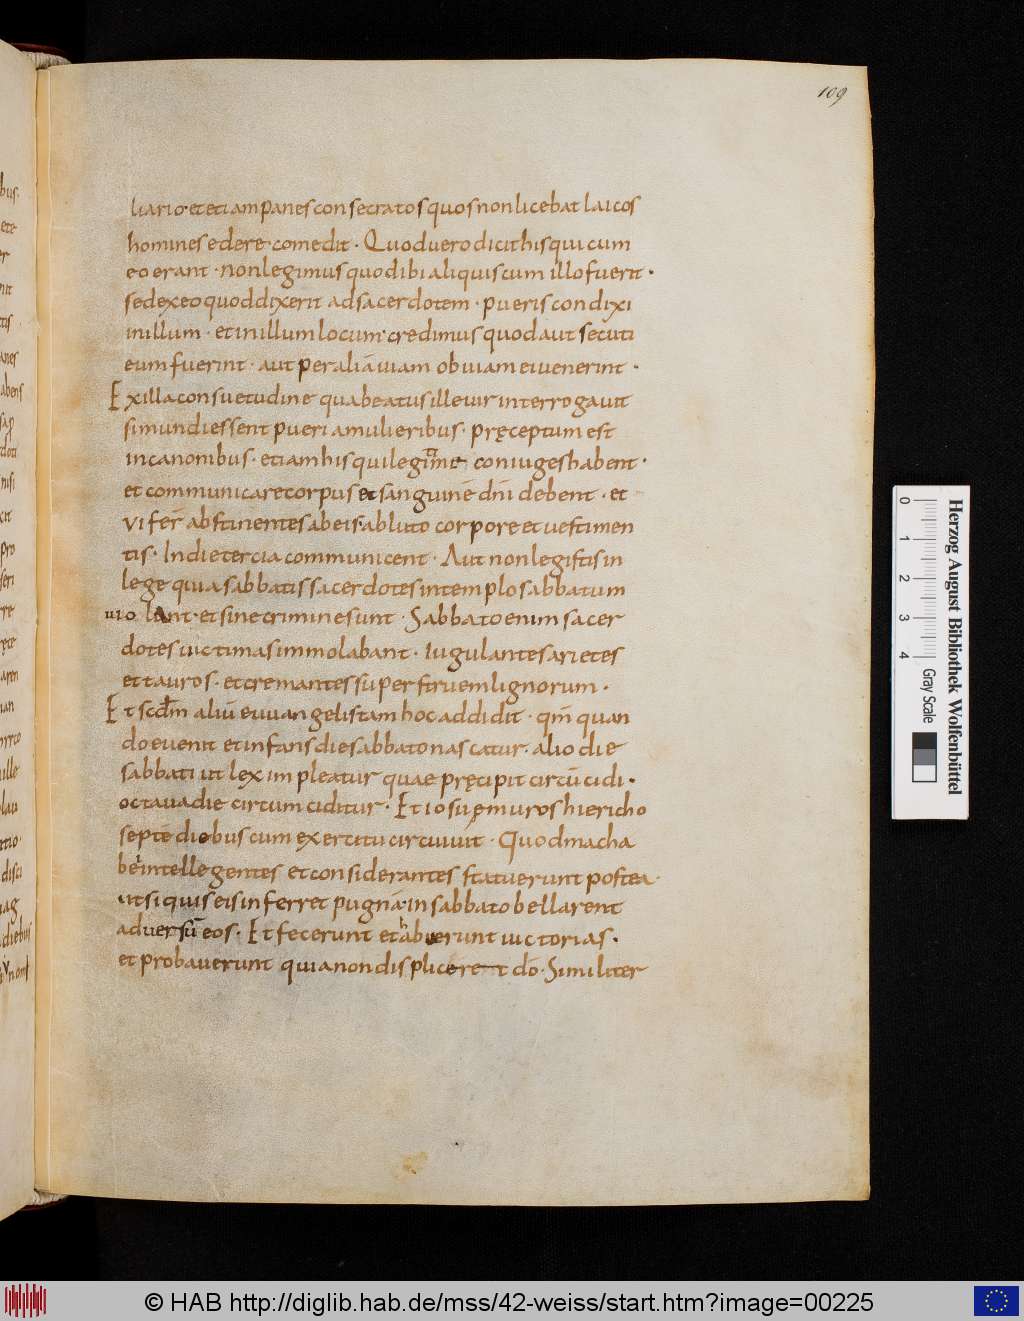 109
liario et etiam panes consecratos quos non licebat laicos
homines edere comedit · Quod uero dicit his qui cum
eo erant · non legimus quod ibi aliquis cum illo fuerit ·
sed ex eo quod dixerit ad sacerdotem · pueris condixi
in illum · et in illum locum · credimus quod aut secuti
eum fuerint · aut per aliā uiam obuiam ei uenerint ·
Ex illa consuetudine qua beatus ille uir interrogauit
si mundi essent pueri a mulieribus · pręceptum est
in canonibus · etiam his qui legiamę coniuges habent ·
et communicare corpus et sanguinē dn̄i debent · et
ut fer̄ abstinentes ab eis · abluto corpore et uestimen
tis · In die tercia communicent · Aut non legistis in
lege quia sabbatis sacerdotes in templo sabbatum
uiolant et sine crimine sunt · Sabbato enim sacer
dotes uictimas immolabant · iugulantes arietes
et tauros · et cremantes super struem lignorum ·
Et scdm̄ aliū euuangelistam hoc addidit · qm̄ quan
do euenit et infans die sabbato nascatur · alio die
sabbati ut lex impleatur quae pręcipit circūcidi ·
octaua die circumciditur · Et iosue muros hiericho
septē diebus cum exercitu circuiuit · Quod macha
bei intellegentes et considerantes statuerunt postea ·
ut si quis eis inferret pugnā · in sabbato bellarent
aduersū eos · Et fecerunt et habuerunt uictorias ·
et probauerunt quia non displicere t dō · Similiter
0 1 2 3 4
Gray Scale
Herzog August Bibliothek Wolfenbüttel
© HAB http://diglib.hab.de/mss/42-weiss/start.htm?image=00225